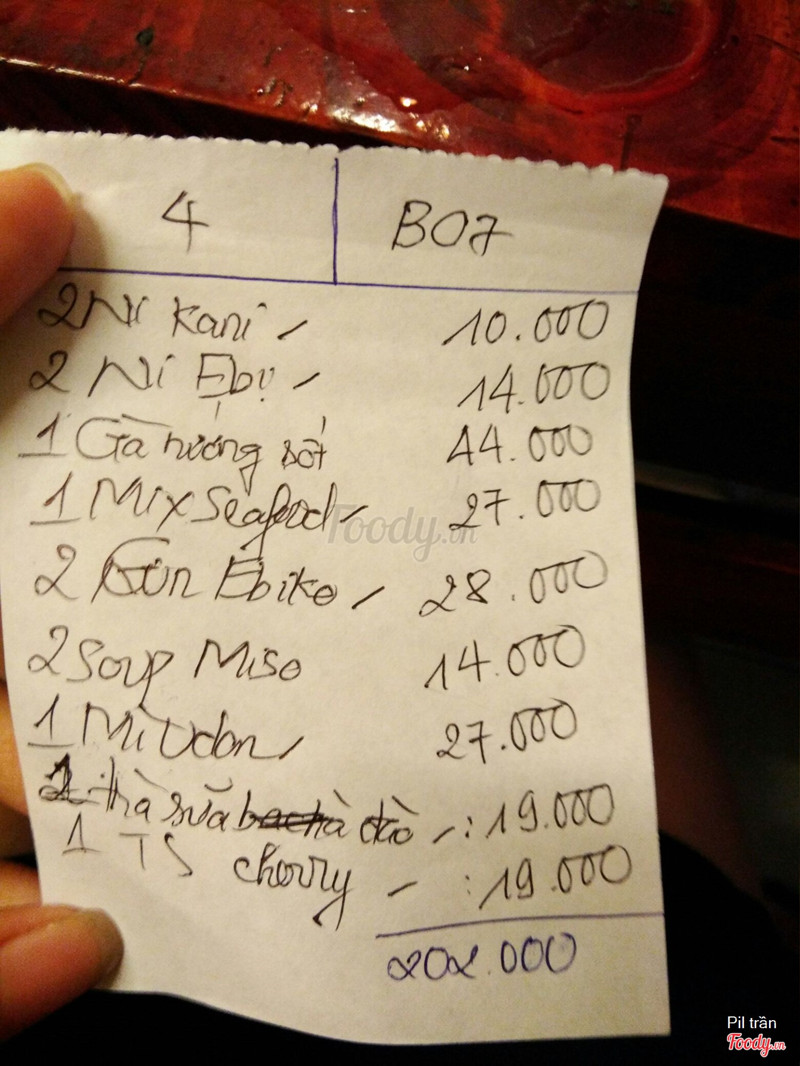 4 B07
2 Ni Kani / 10.000
2 Ni Ebi / 14.000
1 Gà nướng sốt 44.000
1 Mix Seafood / 27.000
2 Gun Ebiko / 28.000
2 Soup Miso 14.000
1 Mì Udon / 27.000
1 trà sữa đào / : 19.000
1 TS cherry / : 19.000
202.000
Foody.vn
Pil trần
Foody.vn